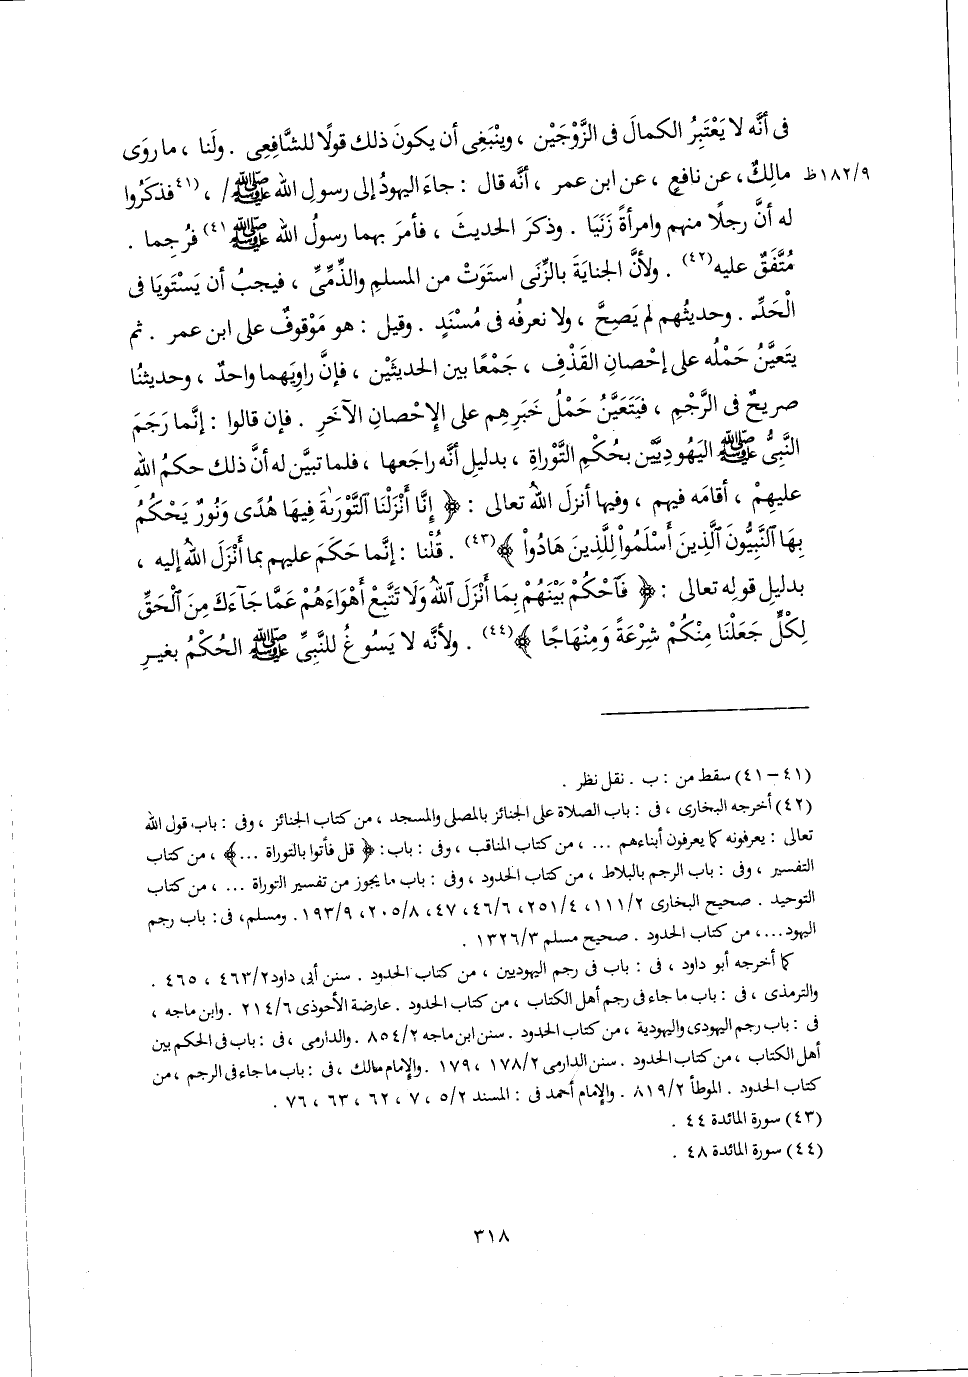 فى أنَّه لا يَعْتَبِرُ الكمالَ فى الزَّوْجَيْن ، وينْبَغِى أن يكونَ ذلك قولًا للشَّافِعِى . ولَنا ، ما روَى
١٨٢/٩ظ مالِكٌ، عن نافعٍ ، عن ابن عمر ، أنَّه قال : جاءَ اليهودُ إلى رسولِ الله ﷺ/ ، (٤١فذكَرُوا
له أنَّ رجلًا منهم وامرأةً زَنَيَا . وذكرَ الحديثَ ، فأمرَ بهما رسولُ الله ﷺ٤١) فرُجِما .
مُتَّفَقٌ عليه(٤٢) . ولأنَّ الجنايةَ بالزِّنَى استَوَتْ من المسلمِ والذِّمِّىِّ ، فيجبُ أن يَسْتَوِيَا فى
الْحَدِّ . وحديثُهم لم يَصِحَّ ، ولا نعرفُه فى مُسْنَدٍ . وقيل : هو مَوْقوفٌ على ابن عمر . ثم
يتَعيَّنُ حَمْلُه على إحْصانِ القَذْفِ ، جَمْعًا بين الحديثَيْن ، فإنَّ راوِيَهما واحدٌ ، وحديثنُا
صريحٌ فى الرَّجْمِ ، فيَتَعَيَّنُ حَمْلُ خَبَرِهم على الإِحْصانِ الآخَرِ . فإن قالوا : إنَّما رَجَمَ
النَّبِىُّ ﷺ اليَهُودِيَّيْن بحُكْمِ التَّوْراةِ ، بدليلِ أنَّه راجَعها ، فلما تبيَّن له أنَّ ذلك حكمُ اللهِ
عليهِمْ ، أقامَه فيهم ، وفيها أنزلَ اللهُ تعالى : ﴿ إِنَّا أَنْزَلْنَا ٱلتَّوْرَىٰةَ فِيهَا هُدًى وَنُورٌ يَحْكُمُ
بِهَا ٱلنَّبِيُّونَ ٱلَّذِينَ أَسْلَمُواْ لِلَّذِينَ هَادُواْ ﴾(٤٣) . قُلْنا : إنَّما حَكَمَ عليهم بما أَنْزَلَ اللهُ إليه ،
بدليلِ قولِه تعالى : ﴿ فَٱحْكُمْ بَيْنَهُمْ بِمَا أَنْزَلَ ٱللهُ وَلَا تَتَّبِعْ أَهْوَاءَهُمْ عَمَّا جَآءَكَ مِنَ ٱلْحَقِّ
لِكُلٍّ جَعَلْنَا مِنْكُمْ شِرْعَةً وَمِنْهَاجًا ﴾(٤٤) . ولأنَّه لا يَسُوغُ للنَّبِىِّ ﷺ الحُكْمُ بغيرِ
(٤١ – ٤١) سقط من : ب . نقل نظر .
(٤٢) أخرجه البخارى ، فى : باب الصلاة على الجنائز بالمصلى والمسجد ، من كتاب الجنائز ، وفى : باب قول الله
تعالى : يعرفونه كما يعرفون أبناءهم ... ، من كتاب المناقب ، وفى : باب: ﴿ قل فأتوا بالتوراة ... ﴾ ، من كتاب
التفسير ، وفى : باب الرجم بالبلاط ، من كتاب الحدود ، وفى : باب ما يجوز من تفسير التوراة ... ، من كتاب
التوحيد . صحيح البخارى ١١١/٢ ، ٢٥١/٤ ، ٤٦/٦ ، ٤٧ ، ٢٠٥/٨ ، ١٩٣/٩ . ومسلم، فى : باب رجم
اليهود...، من كتاب الحدود . صحيح مسلم ١٣٢٦/٣ .
كما أخرجه أبو داود ، فى : باب فى رجم اليهوديين ، من كتاب الحدود . سنن أبى داود ٤٦٣/٢ ، ٤٦٥ .
والترمذى ، فى : باب ما جاء فى رجم أهل الكتاب ، من كتاب الحدود . عارضة الأحوذى ٢١٤/٦ . وابن ماجه ،
فى : باب رجم اليهودى واليهودية ، من كتاب الحدود . سنن ابن ماجه ٨٥٤/٢ . والدارمى ، فى : باب فى الحكم بين
أهل الكتاب ، من كتاب الحدود . سنن الدارمى ١٧٨/٢ ، ١٧٩ . والإمام مالك ، فى : باب ما جاء فى الرجم ، من
كتاب الحدود . الموطأ ٨١٩/٢ . والإمام أحمد فى : المسند ٥/٢ ، ٧ ، ٦٢ ، ٦٣ ، ٧٦ .
(٤٣) سورة المائدة ٤٤ .
(٤٤) سورة المائدة ٤٨ .
٣١٨